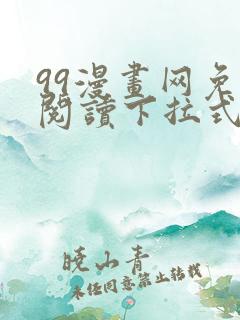 99漫畫网免
閱讀下拉式
曉山青
未经同意禁止转载